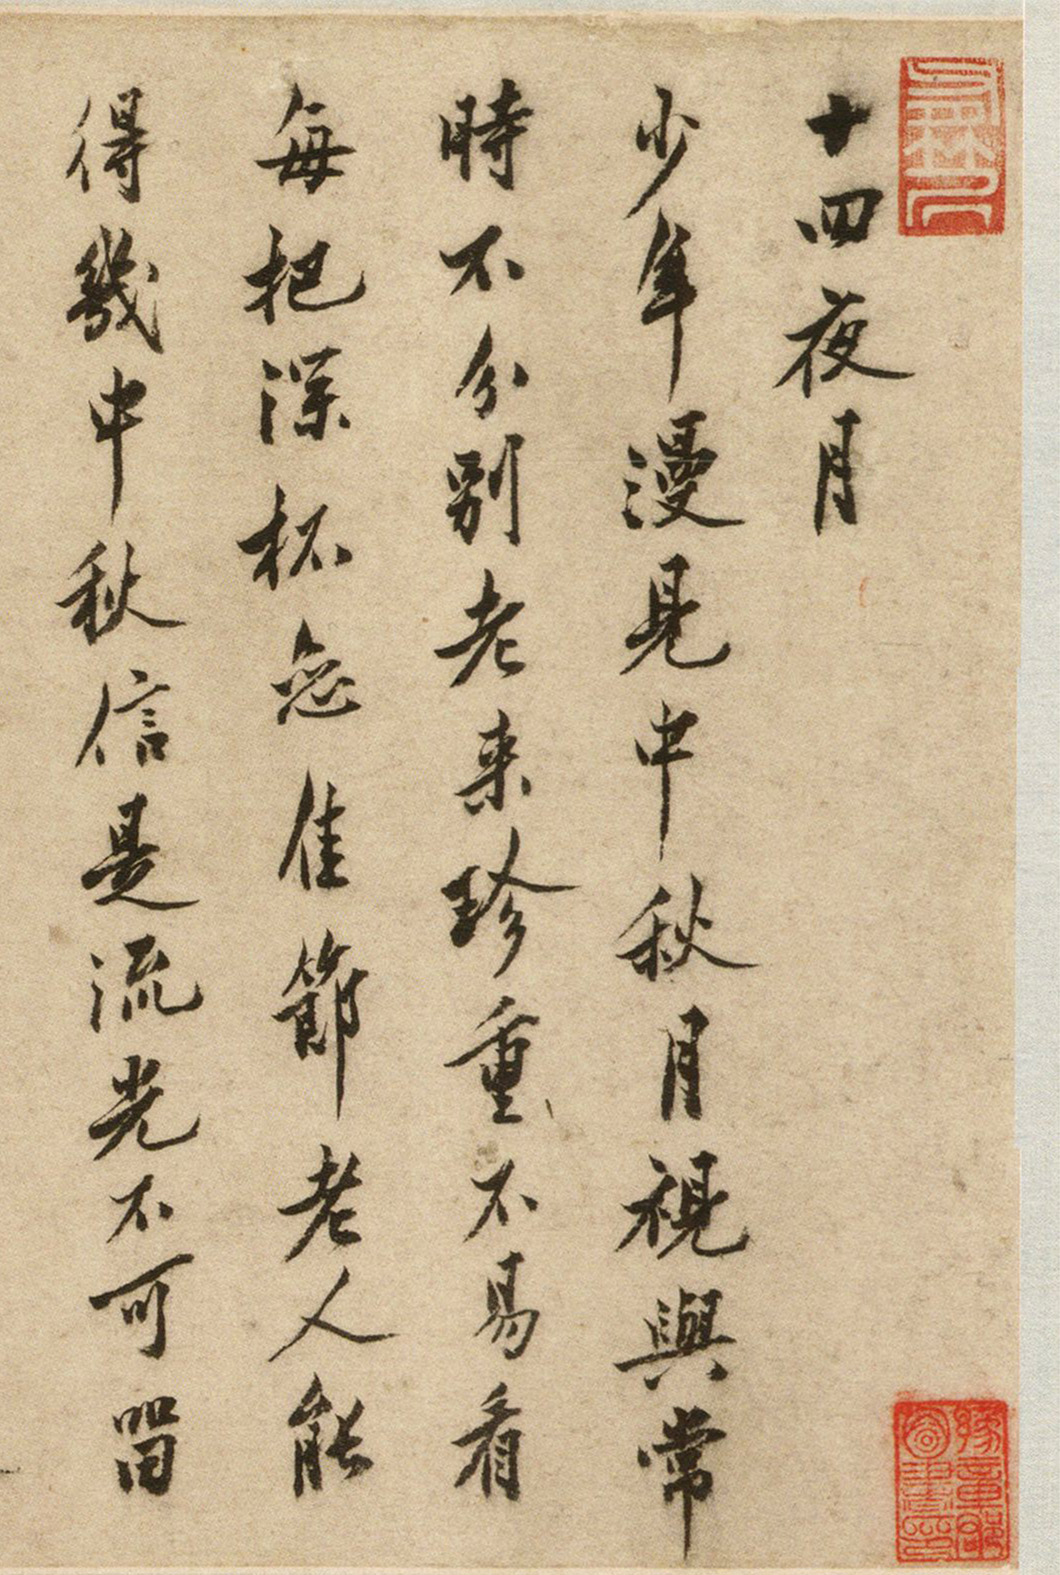 十四夜月
少年漫見中秋月視與常
時不分別老来珍重不易看
每把深杯恋佳節老人能
得幾中秋信是流光不可留